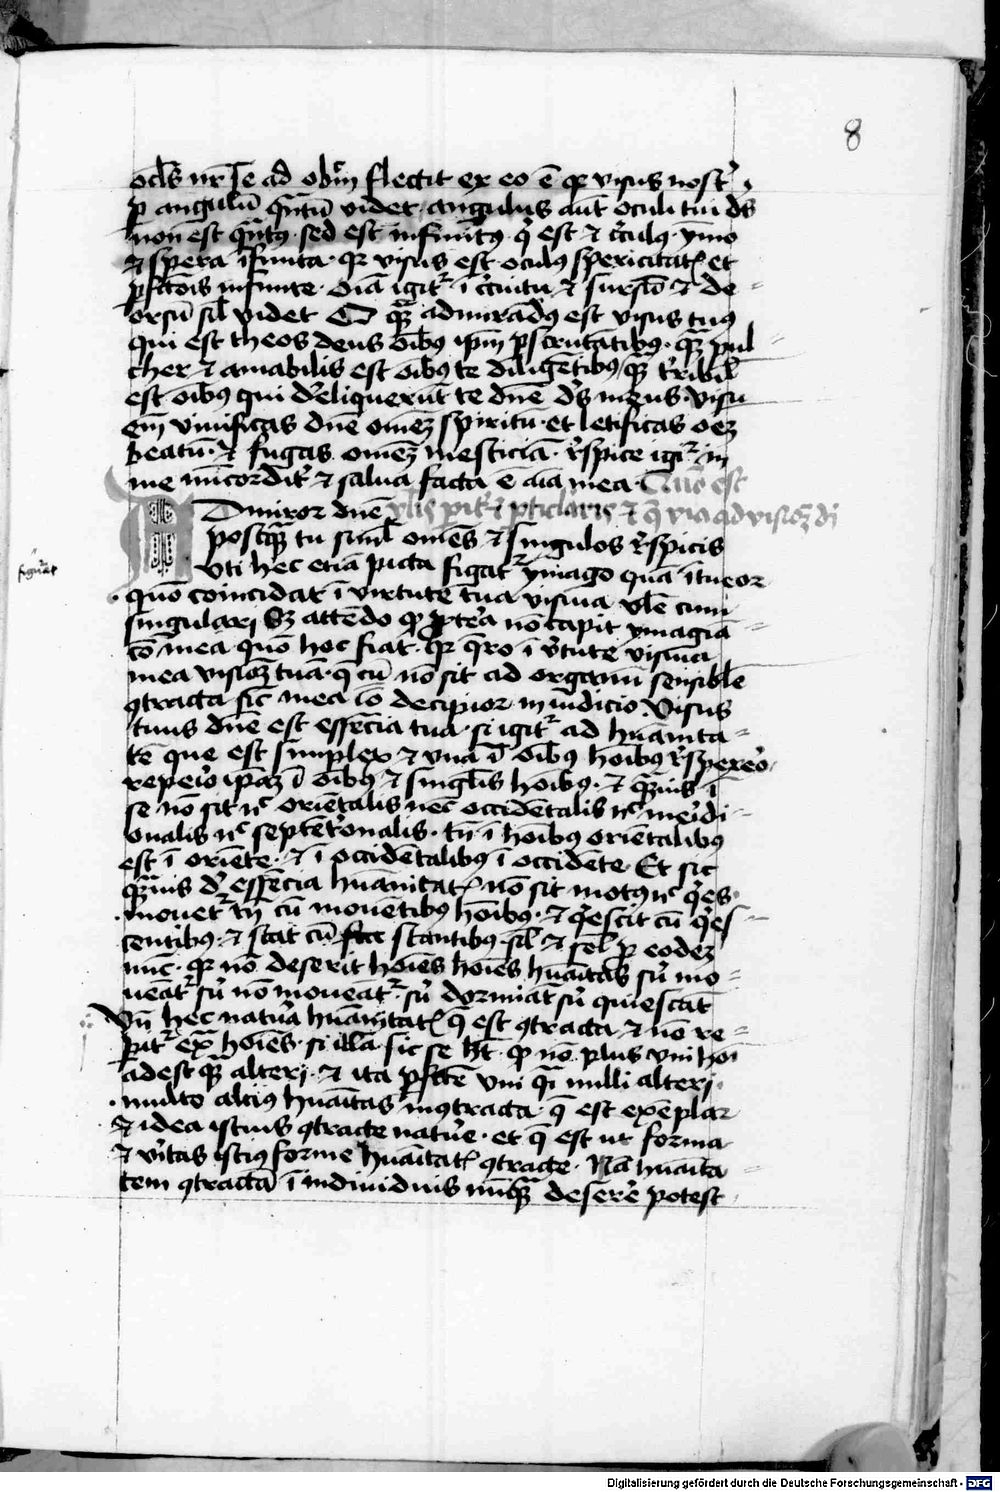 8
ocl's nr̄ se ad obm̄ flectit ex eo ē qr visus nost'
p angulū qntū videt. angulus aut oculi tui ds
non est qntus. sed est infinitus q' est et c'culus. ymo
et spera īfinita. qr visus est oculus spericitatis et
pfctōis infinite. Oīa igitr ī c'cuitu et sursū et de=
orsū sil' videt O qm̄ admirādus est visus tuus
qui est theos deus oībus ipm̄ pscrutātibus. qm̄ pul=
cher et amabilis est oībus te diligētibus qm̄ t'ribil'
est oībus qui d'eliquerūt te dnē d's meus. Visu
em̄ viuificas dnē omēz spiritū. et letificas oēz
beatū. et fugas omēz mesticiā. r'spice igitr in
me mīcordit' et salua facta ē aīa mea. Quō est
Admiror dnē vl'is pit' et pticl'aris et q̄ via ad visionēz d'i
postqm̄ tu simul omēs et singulos r'spicis
figurat'
vti hec etiā picta figatr ymago quā ītueor
quō coincidat ī virtute tua visiua vl'e cum
singulari Sz attēdo qr pptea nō capit ymagiā=
tō mea. quō hoc fiat. qr q̄ro ī v'tute visiua
mea visionēz tuā. q̄ cū nō sit ad organū sensibile
9tracta sic mea iō decipior in iudicio. Visus
tuus dnē est essēcia tua. si igitr ad huāita=
tē que est simplex et vna ī oībus hoībus r'spexero
repeio ipāz ī oībus et singl'is hoībus. et qm̄uis ī
se nō sit nc oriētalis nec occidētalis nc meridi=
onalis nc septētrionalis. tn̄ ī hoībus oriētalibus
est ī oriēte. et ī occidētalibus ī occidēte. Et sic
qm̄uis d' essēcia huāitatis nō sit motus nc q'es.
mouetr tn̄ cū mouētibus hoībus. et q'escit cū q'es=
centibus. et stat cū stantibus sil' et sel' p eodēz
nūc. qr nō deserit hoīes hoīes huāitas siue mo=
ueātr siue nō moueātr. siue dormiāt siue quiescāt
Vn̄ hec natura huāitatis q̄ est 9tracta et nō re=
pitr extra hoīes. si illa sic se ht. qr nō plus vni hoī
adest qm̄ alteri. et ita pfcte vni qsi nulli alteri.
multo alcius huāitas in9tracta. q̄ est exēplar
et idea istius 9tracte nature. et q̄ est ut forma
et v'itas istius forme huāitatis 9tracte. Nā huāita=
tem 9tractā ī indiuiduis nūqm̄ deserere potest
Digitalisierung gefördert durch die Deutsche Forschungsgemeinschaft - DFG